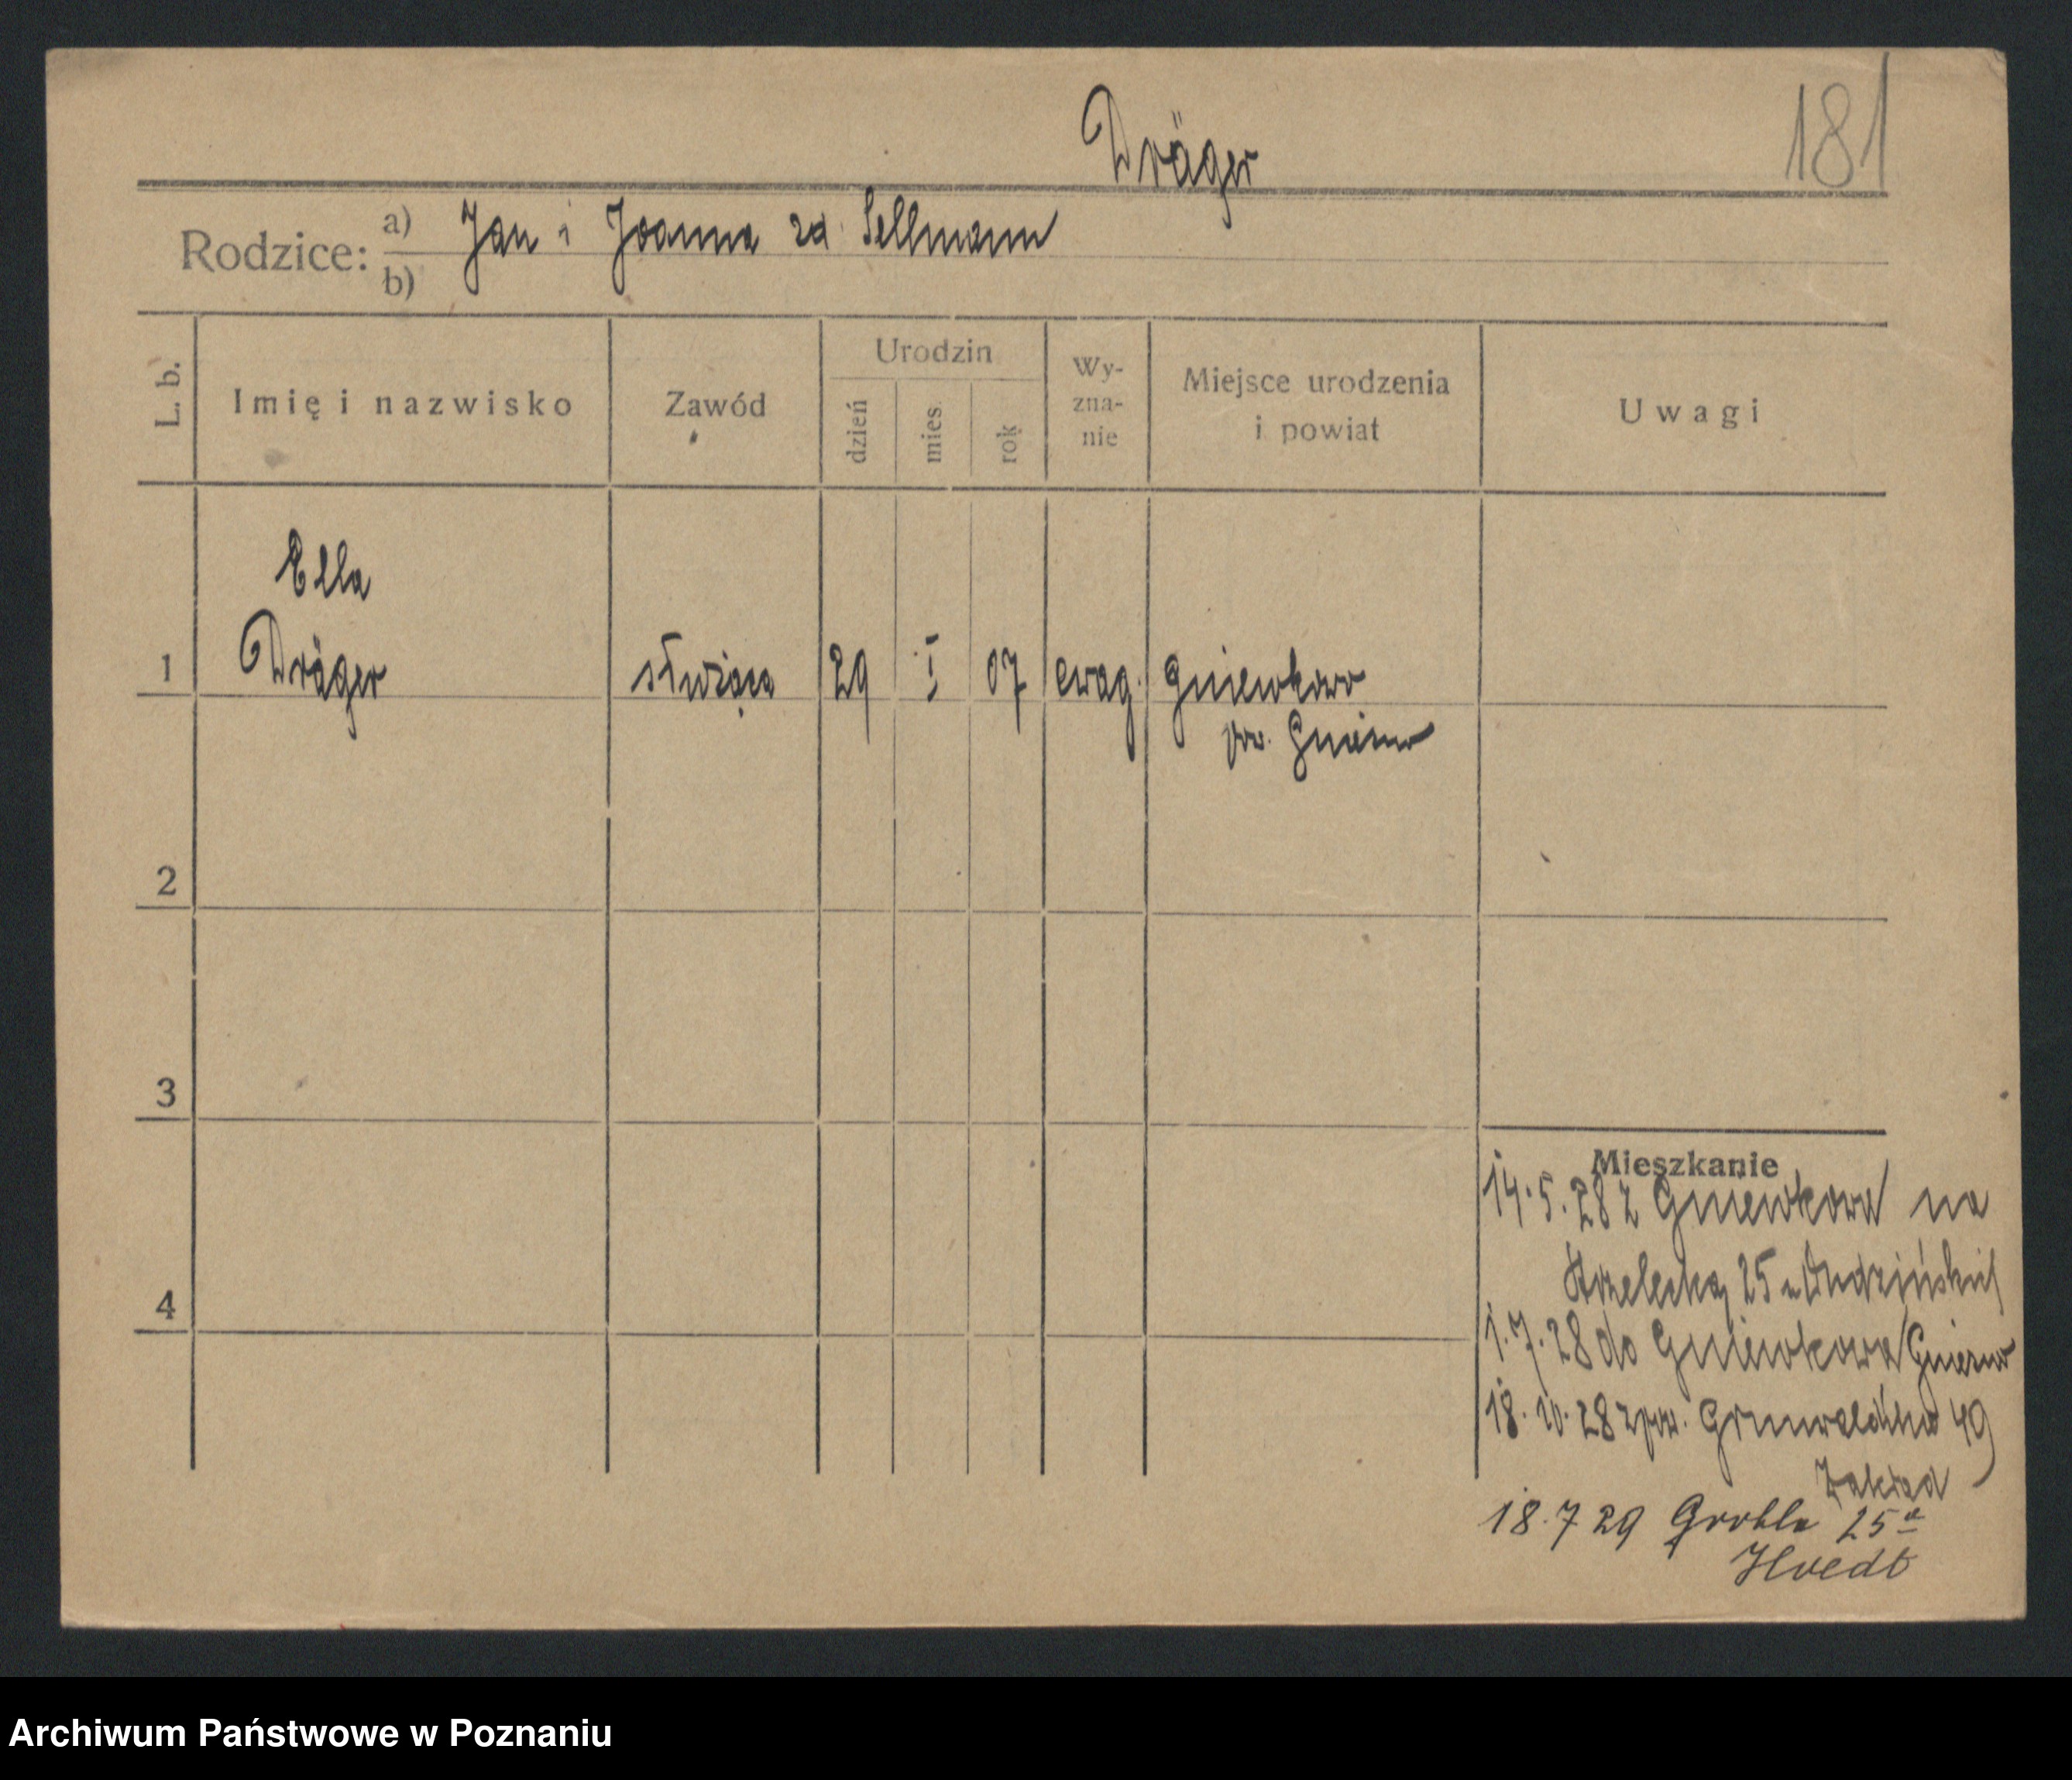 181
Dräger
Rodzice: a) Jan i Joanna zd. Sellmann
b)
L. b.
Imię i nazwisko
Zawód
Urodzin
dzień
mies.
rok
Wy-
zna-
nie
Miejsce urodzenia
i powiat
Uwagi
Ella
1 Dräger służąca 29 I 07 ewag. Gniewkowo
pow. Gniezno
2
3
4
Mieszkanie
14.5.28 z Gniewkowa na
Strzelecką 25
1.7.28 do Gniewkowa/Gniezno
18.10.28 zpow. Grunwaldzka 49
Zakład
18.7 29 Grobla 25a
Archiwum Państwowe w Poznaniu